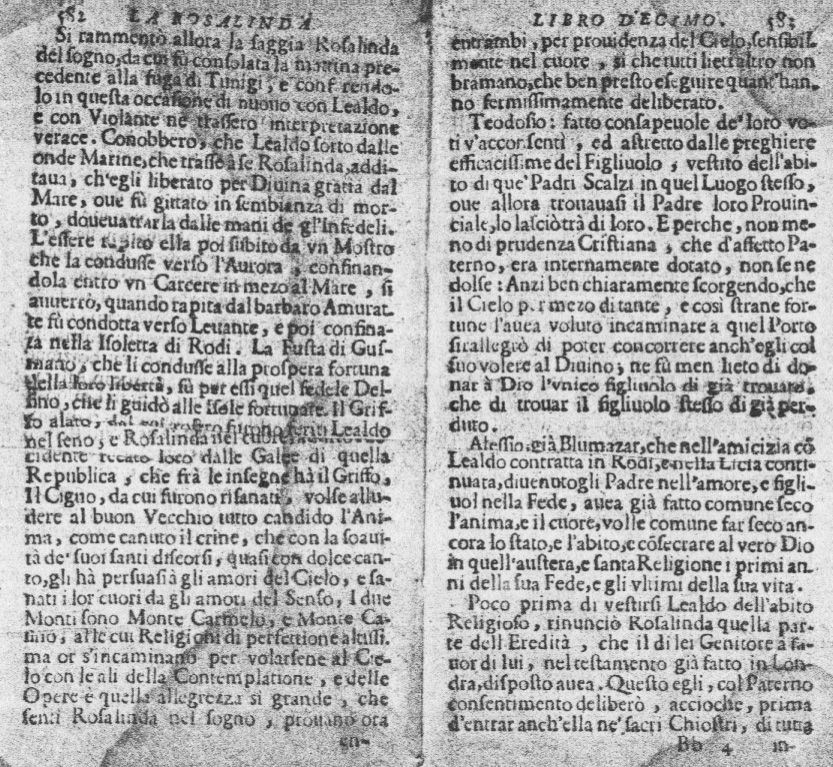 582 LA ROSALINDA
Si rammentò allora la saggia Rosalinda
del sogno, da cui fù consolata la mattina pre-
cedente alla fuga di Tunigi, e conferendo-
lo in questa occasione di nuouo con Lealdo,
e con Violante ne trassero interpretazione
verace. Conobbero, che Lealdo sorto dalle
onde Marine, che trasse à se Rosalinda, addi-
taua, ch'egli liberato per Diuina gratia dal
Mare, oue fù gittato in sembianza di mor-
to, doueua trarla dalle mani de gl'Infedeli.
L'essere rapito ella poi subito da vn Mostro
che la condusse verso l'Aurora, confinan-
dola entro vn Carcere in mezo al Mare, si
auuerrò, quando rapita dal barbaro Amurat-
te fù condotta verso Leuante, e poi confina-
ta nella Isoletta di Rodi. La Fusta di Gus-
mano, che li condusse alla prospera fortuna
della loro libertà, fù per essi quel fedele Del-
fino, che li guidò alle Isole fortunate. Il Grif-
fo alato, dal cui rostro furono feriti Lealdo
nel seno, e Rosalinda nel cuore
cidente recato loro dalle Galee di quella
Republica, che frà le insegne hà il Griffo,
Il Cigno, da cui furono risanati, volse allu-
dere al buon Vecchio tutto candido l'Ani-
ma, come canuto il crine, che con la soaui-
tà de' suoi santi discorsi, quasi con dolce can-
to, gli hà persuasi à gli amori del Cielo, e sa-
nati i lor cuori da gli amori del Senso, I due
Monti sono Monte Carmelo, e Monte Ca-
sino, alle cui Religioni di perfettione altissi-
ma or s'incaminano per volarsene al Cie-
lo con le ali della Contemplatione, e delle
Opere e quella allegrezza sì grande, che
sentì Rosalinda nel sogno, prouano ora
en-
LIBRO DECIMO. 583
entrambi, per prouidenza del Cielo, sensibil-
mente nel cuore, sì che tutti lieti altro non
bramano, che ben presto eseguire quant'han-
no fermissimamente deliberato.
Teodosio: fatto consapeuole de' loro vo-
ti v'accorsentì, ed astretto dalle preghiere
efficacissime del Figliuolo, vestito dell'abi-
to di que' Padri Scalzi in quel Luogo stesso,
oue allora trouauasi il Padre loro Prouin-
ciale, lo lasciò trà di loro. E perche, non me-
no di prudenza Cristiana, che d'affetto Pa-
terno, era internamente dotato, non se ne
dolse: Anzi ben chiaramente scorgendo, che
il Cielo per mezo di tante, e così strane for-
tune l'auea voluto incaminare a quel Porto
si rallegrò di poter concorrere anch'egli col
suo volere al Diuino; ne fù men lieto di do-
nar à Dio l'vnico figliuolo di già trouato,
che di trouar il figliuolo stesso di già per-
duto.
Alessio, già Blumazar, che nell'amicizia cō
Lealdo contratta in Rodi, e nella Licia conti-
nuata, diuenutogli Padre nell'amore, e figli-
uol nella Fede, auea già fatto comune seco
l'anima, e il cuore, volle comune far seco an-
cora lo stato, e l'abito, e cōsecrare al vero Dio
in quell'austera, e santa Religione i primi an-
ni della sua Fede, e gli vltimi della sua vita.
Poco prima di vestirsi Lealdo dell'abito
Religioso, rinunciò Rosalinda quella par-
te dell Eredità, che il di lei Genitore à fa-
uor di lui, nel testamento già fatto in Lon-
dra, disposto auea. Questo egli, col Paterno
consentimento deliberò, accioche, prima
d'entrar anch'ella ne' sacri Chiostri, di tutta
Bb 4 in-